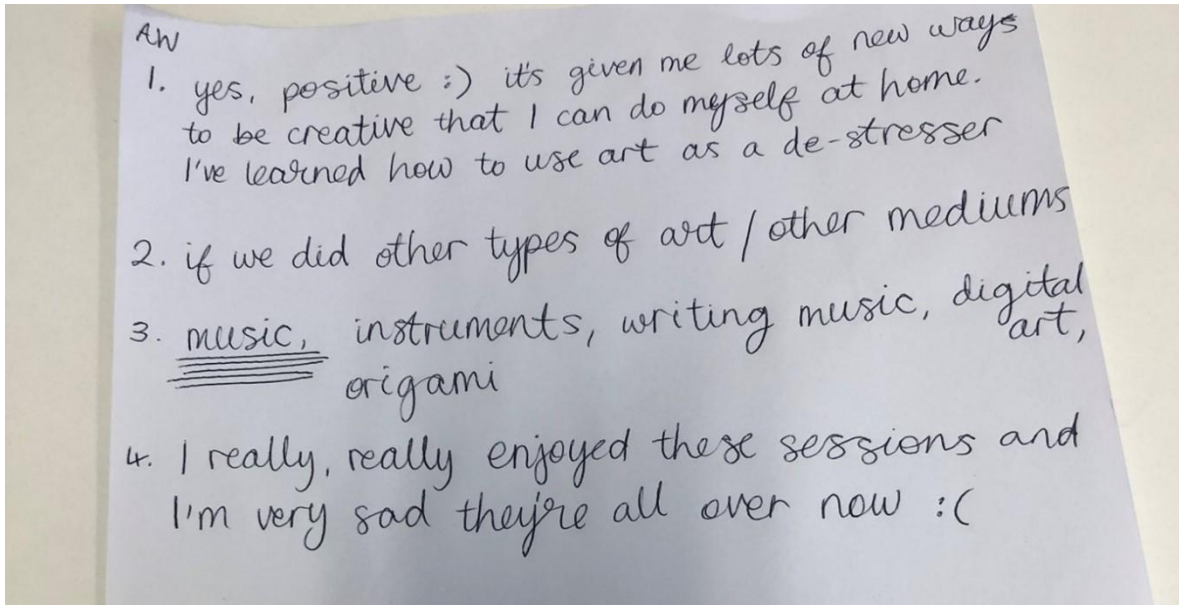 AW
1. yes, positive :) it's given me lots of new ways
to be creative that I can do myself at home.
I've learned how to use art as a de-stresser
2. if we did other types of art / other mediums
3. music, instruments, writing music, digital
art,
origami
4. I really, really enjoyed these sessions and
I'm very sad they're all over now :(